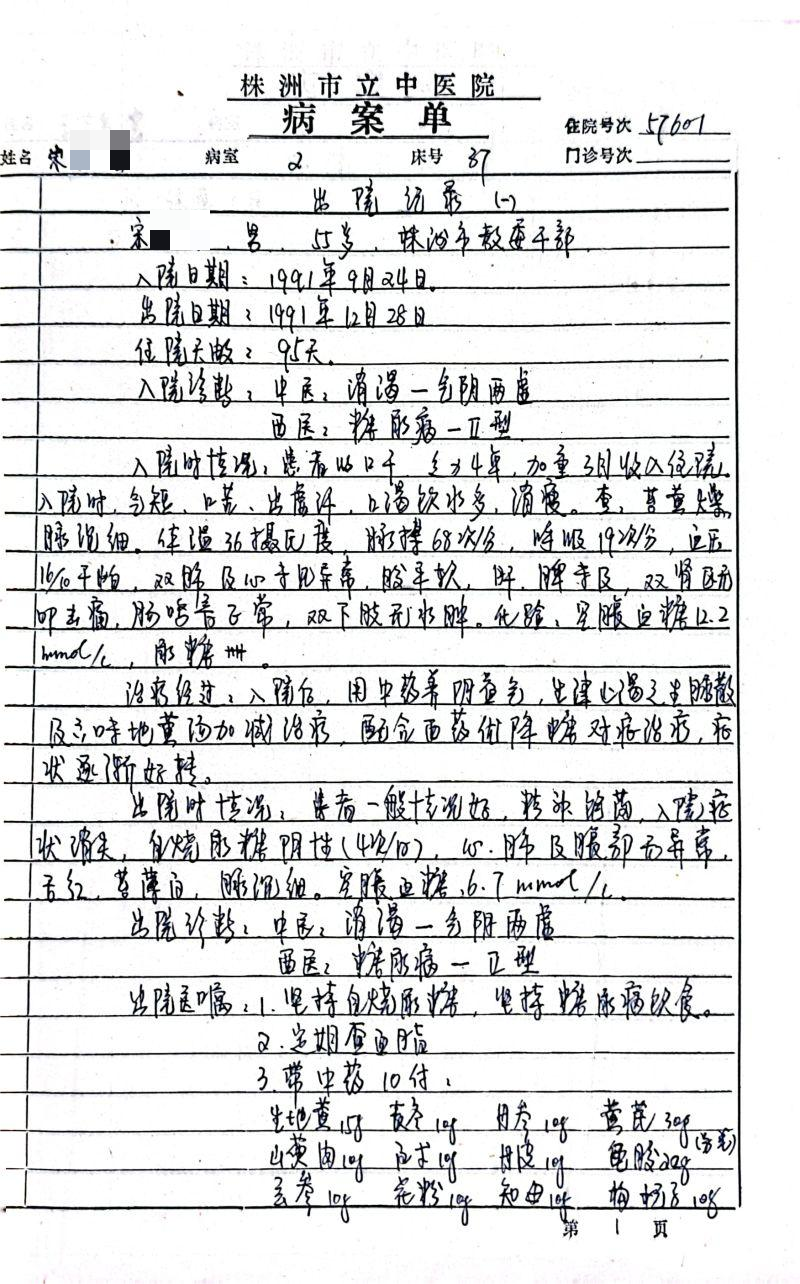 株洲市立中医院
病案单
住院号次 57601
姓名 宋 病室 2 床号 37 门诊号次
出院记录(一)
宋 , 男 , 55岁 , 株洲市教委干部
入院日期: 1991年9月24日。
出院日期: 1991年12月28日
住院天数: 95天。
入院诊断: 中医: 消渴—气阴两虚
西医: 糖尿病—Ⅱ型
入院时情况: 患者以口干, 乏力4年, 加重3月收入住院。
入院时, 气短、口苦、出虚汗、口渴饮水多, 消瘦。查: 苔黄燥,
脉沉细。体温36摄氏度, 脉搏68次/分, 呼吸19次/分, 血压
16/10千帕, 双肺及心未见异常, 腹平软, 肝、脾未及, 双肾区无
叩击痛, 肠鸣音正常, 双下肢无水肿。化验: 空腹血糖12.2
mmol/L, 尿糖卌。
治疗经过: 入院后, 用中药养阴益气, 生津止渴之生脉散
及六味地黄汤加减治疗, 配合西药优降糖对症治疗, 症
状逐渐好转。
出院时情况: 患者一般情况好, 精神 , 入院症
状消失, 自烧尿糖阴性(4次/日), 心、肺及腹部无异常,
舌红, 苔薄白, 脉沉细。空腹血糖6.7mmol/L。
出院诊断: 中医: 消渴—气阴两虚
西医: 糖尿病—Ⅱ型
出院医嘱: 1. 坚持自烧尿糖, 坚持糖尿病饮食。
2. 定期查血脂
3. 带中药10付:
生地黄15g 党参10g 丹参10g 黄芪30g
山萸肉10g 白术10g 丹皮10g 龟胶20g
玄参10g 花粉10g 知母10g 10g
第 1 页